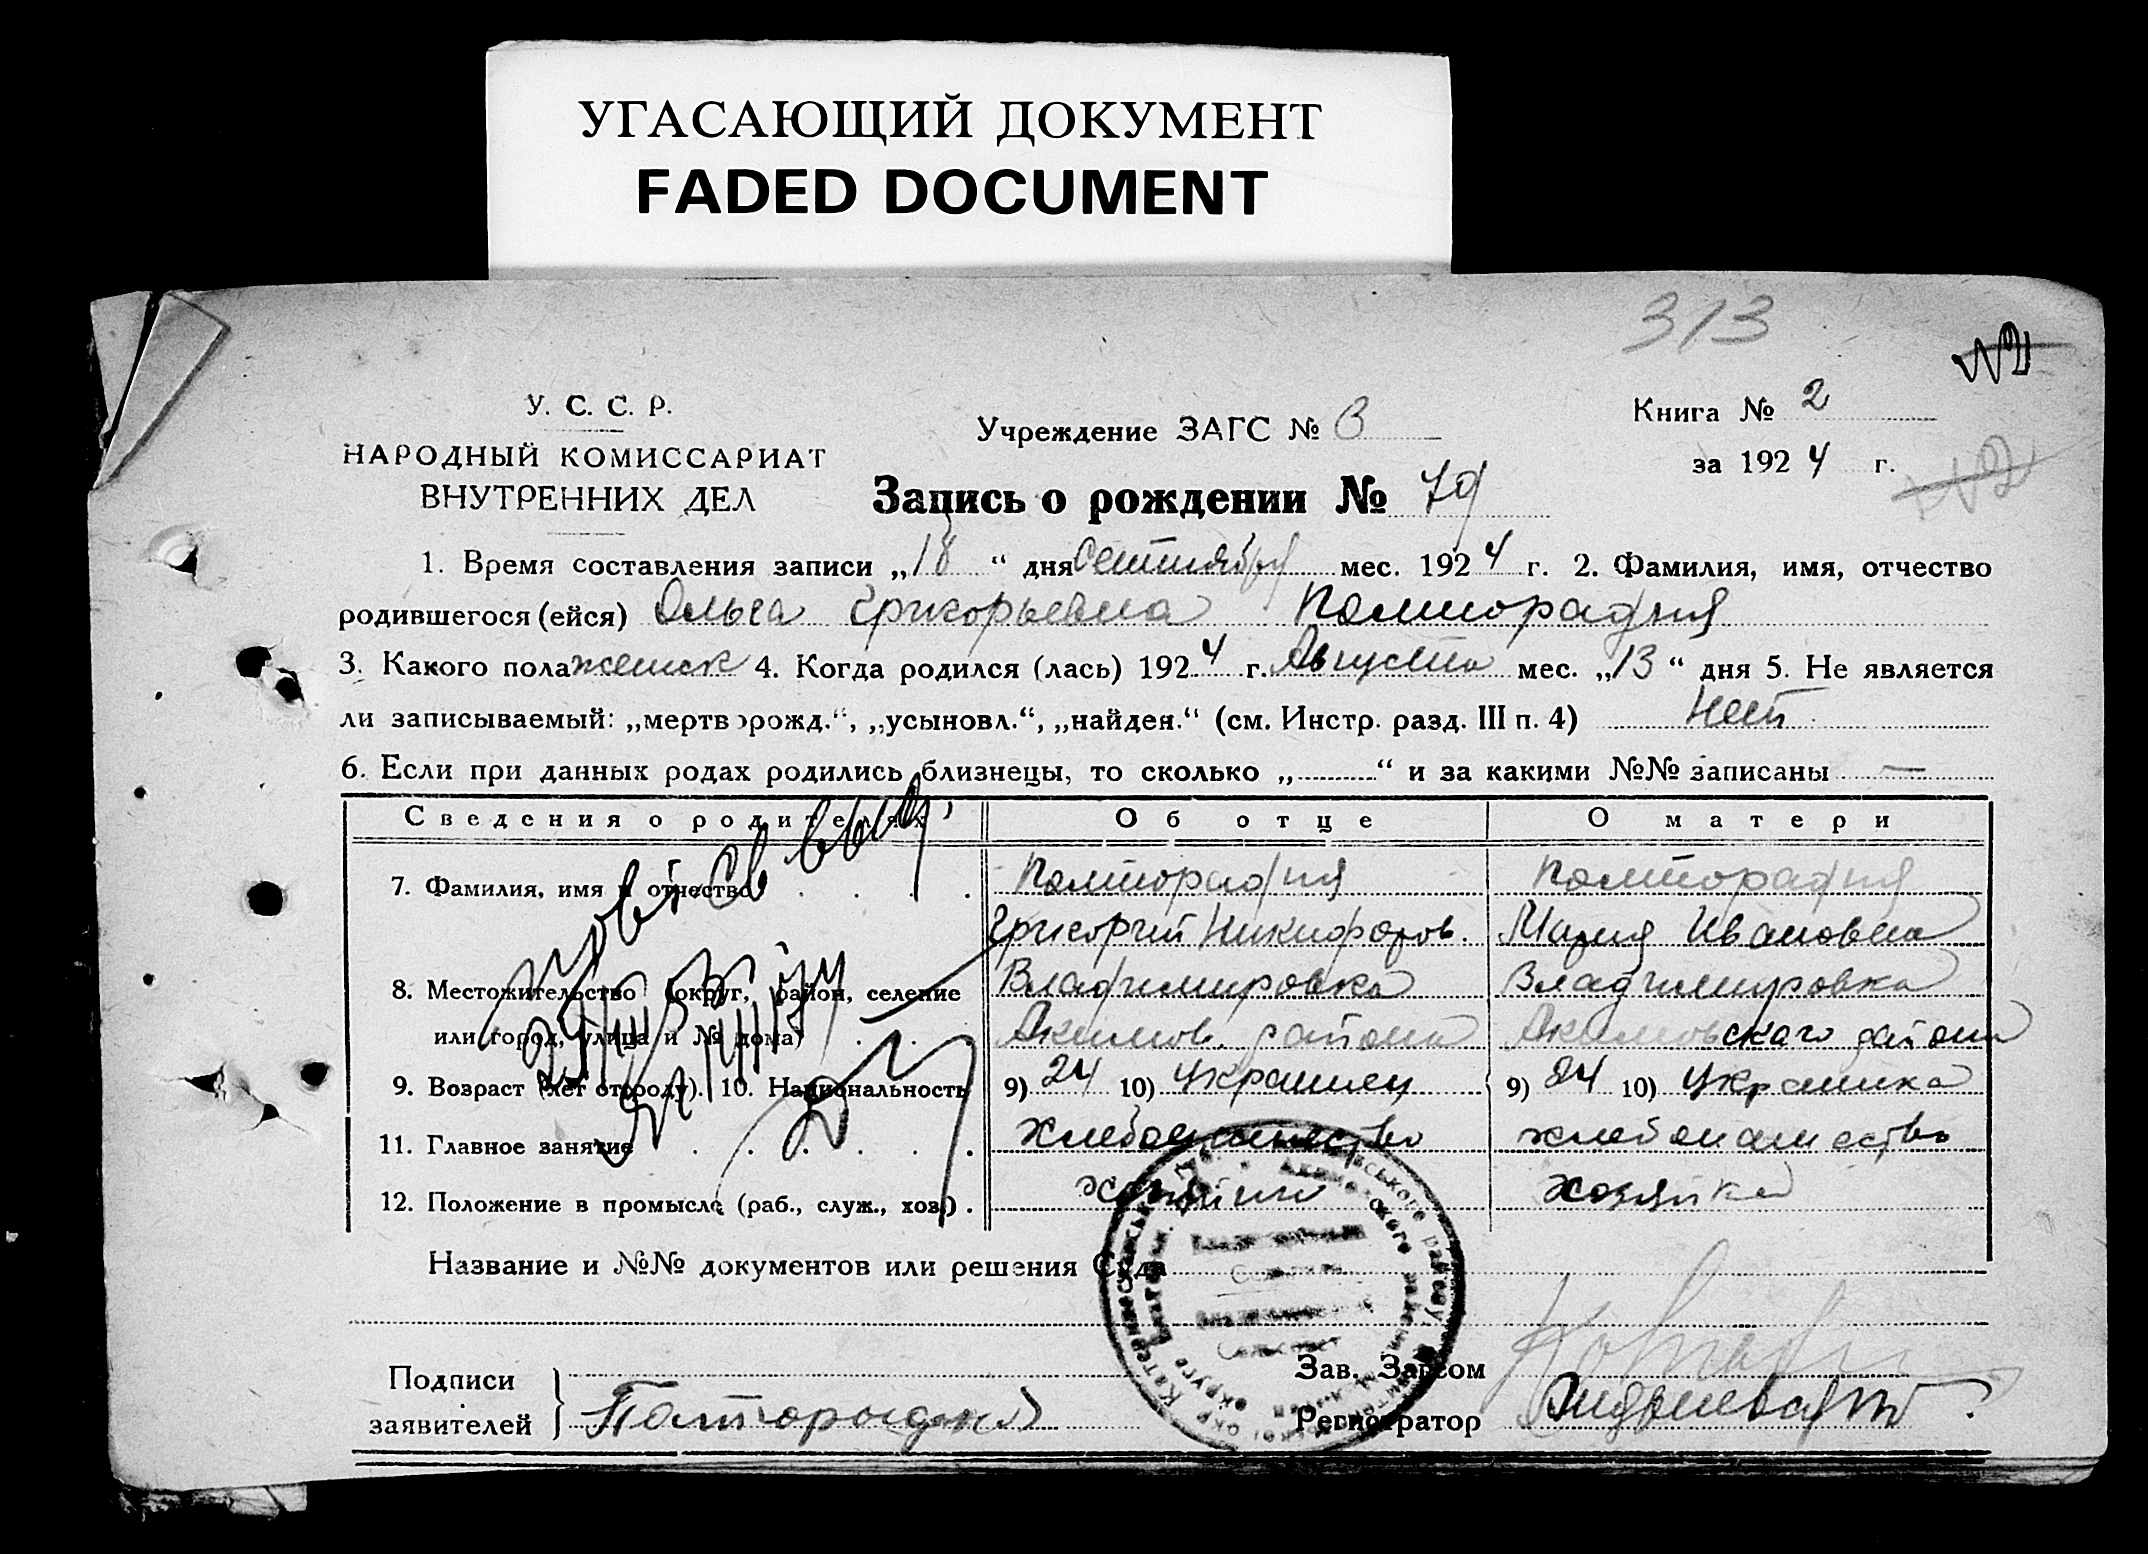 УГАСАЮЩИЙ ДОКУМЕНТ
FADED DOCUMENT
313
У. С. С. Р.
НАРОДНЫЙ КОМИССАРИАТ
ВНУТРЕННИХ ДЕЛ
Учреждение ЗАГС №
Книга № 2
за 1924 г.
Запись о рождении № 79
1. Время составления записи „18“ дня Сентября мес. 1924 г. 2. Фамилия, имя, отчество
родившегося (ейся) Ольга Григорьевна Полторадня
3. Какого пола женск 4. Когда родился (лась) 1924 г. Августа мес. „13“ дня 5. Не является
ли записываемый: „мертворожд.“, „усыновл.“, „найден.“ (см. Инстр. разд. III п. 4) Нет
6. Если при данных родах родились близнецы, то сколько „ “ и за какими №№ записаны —
Сведения о родителях Об отце О матери
7. Фамилия, имя и отчество Полторадня Полторадня
Григорий Никифоров. Мария Ивановна
8. Местожительство (округ, район, селение Владимировка Владимировка
или город, улица и № дома) Акимов. района Акимовского района
9. Возраст (лет отроду). 10. Национальность 9) 24 10) Украинец 9) 24 10) Украинка
11. Главное занятие Хлебопашество хлебопашество
12. Положение в промысле (раб., служ., хоз.) хозяин хозяйка
Название и №№ документов или решения Суда
Подписи
заявителей
Зав. Загсом
Регистратор